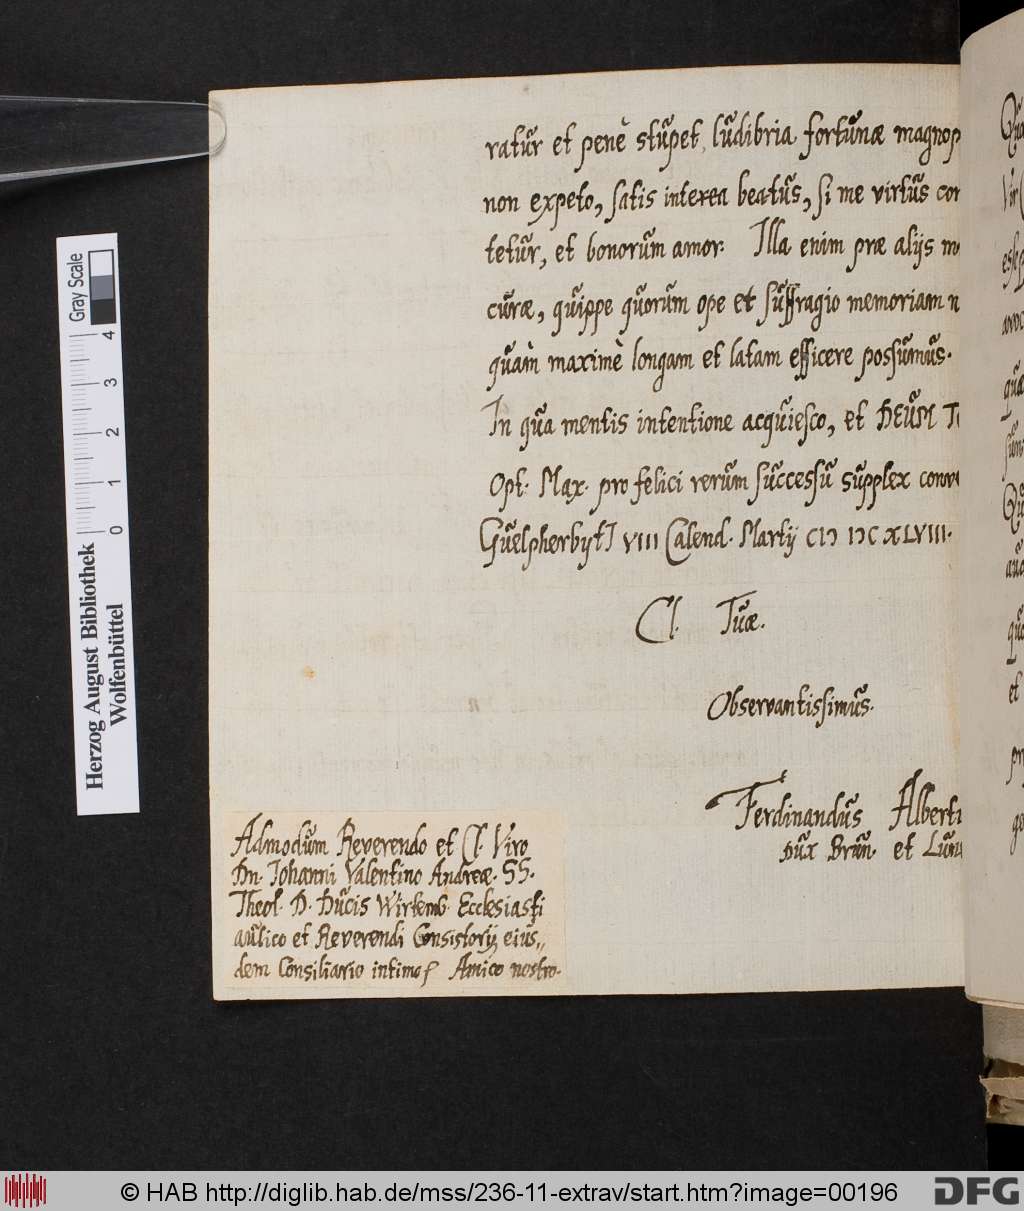 ratur et penè stupet, ludibria fortunæ magnop
non expeto, satis interea beatus, si me virtus con
tetur, et bonorum amor. Illa enim præ alijs m
curæ, quippe quorum ope et suffragio memoriam n
quàm maximè longam et latam efficere possumus.
In qua mentis intentione acquiesco, et DEUM
Opt. Max. pro felici rerum successu supplex
Guelpherbyti VIII Calend. Martij CIↃ IↃC XLVIII.
Cl. Tuæ.
Observantissimus.
Ferdinandus Alberti
Dux Brun. et Lun
Admodum Reverendo et Cl. Viro
Dn. Johanni Valentino Andreæ. SS.
Theol. D. Ducis Wirtemb. Ecclesiasti
aulico et Reverendi Consistorij eius,,
dem Consiliario intimo Amico nostro.
Gray Scale
0 1 2 3 4
Herzog August Bibliothek
Wolfenbüttel
© HAB http://diglib.hab.de/mss/236-11-extrav/start.htm?image=00196
DFG